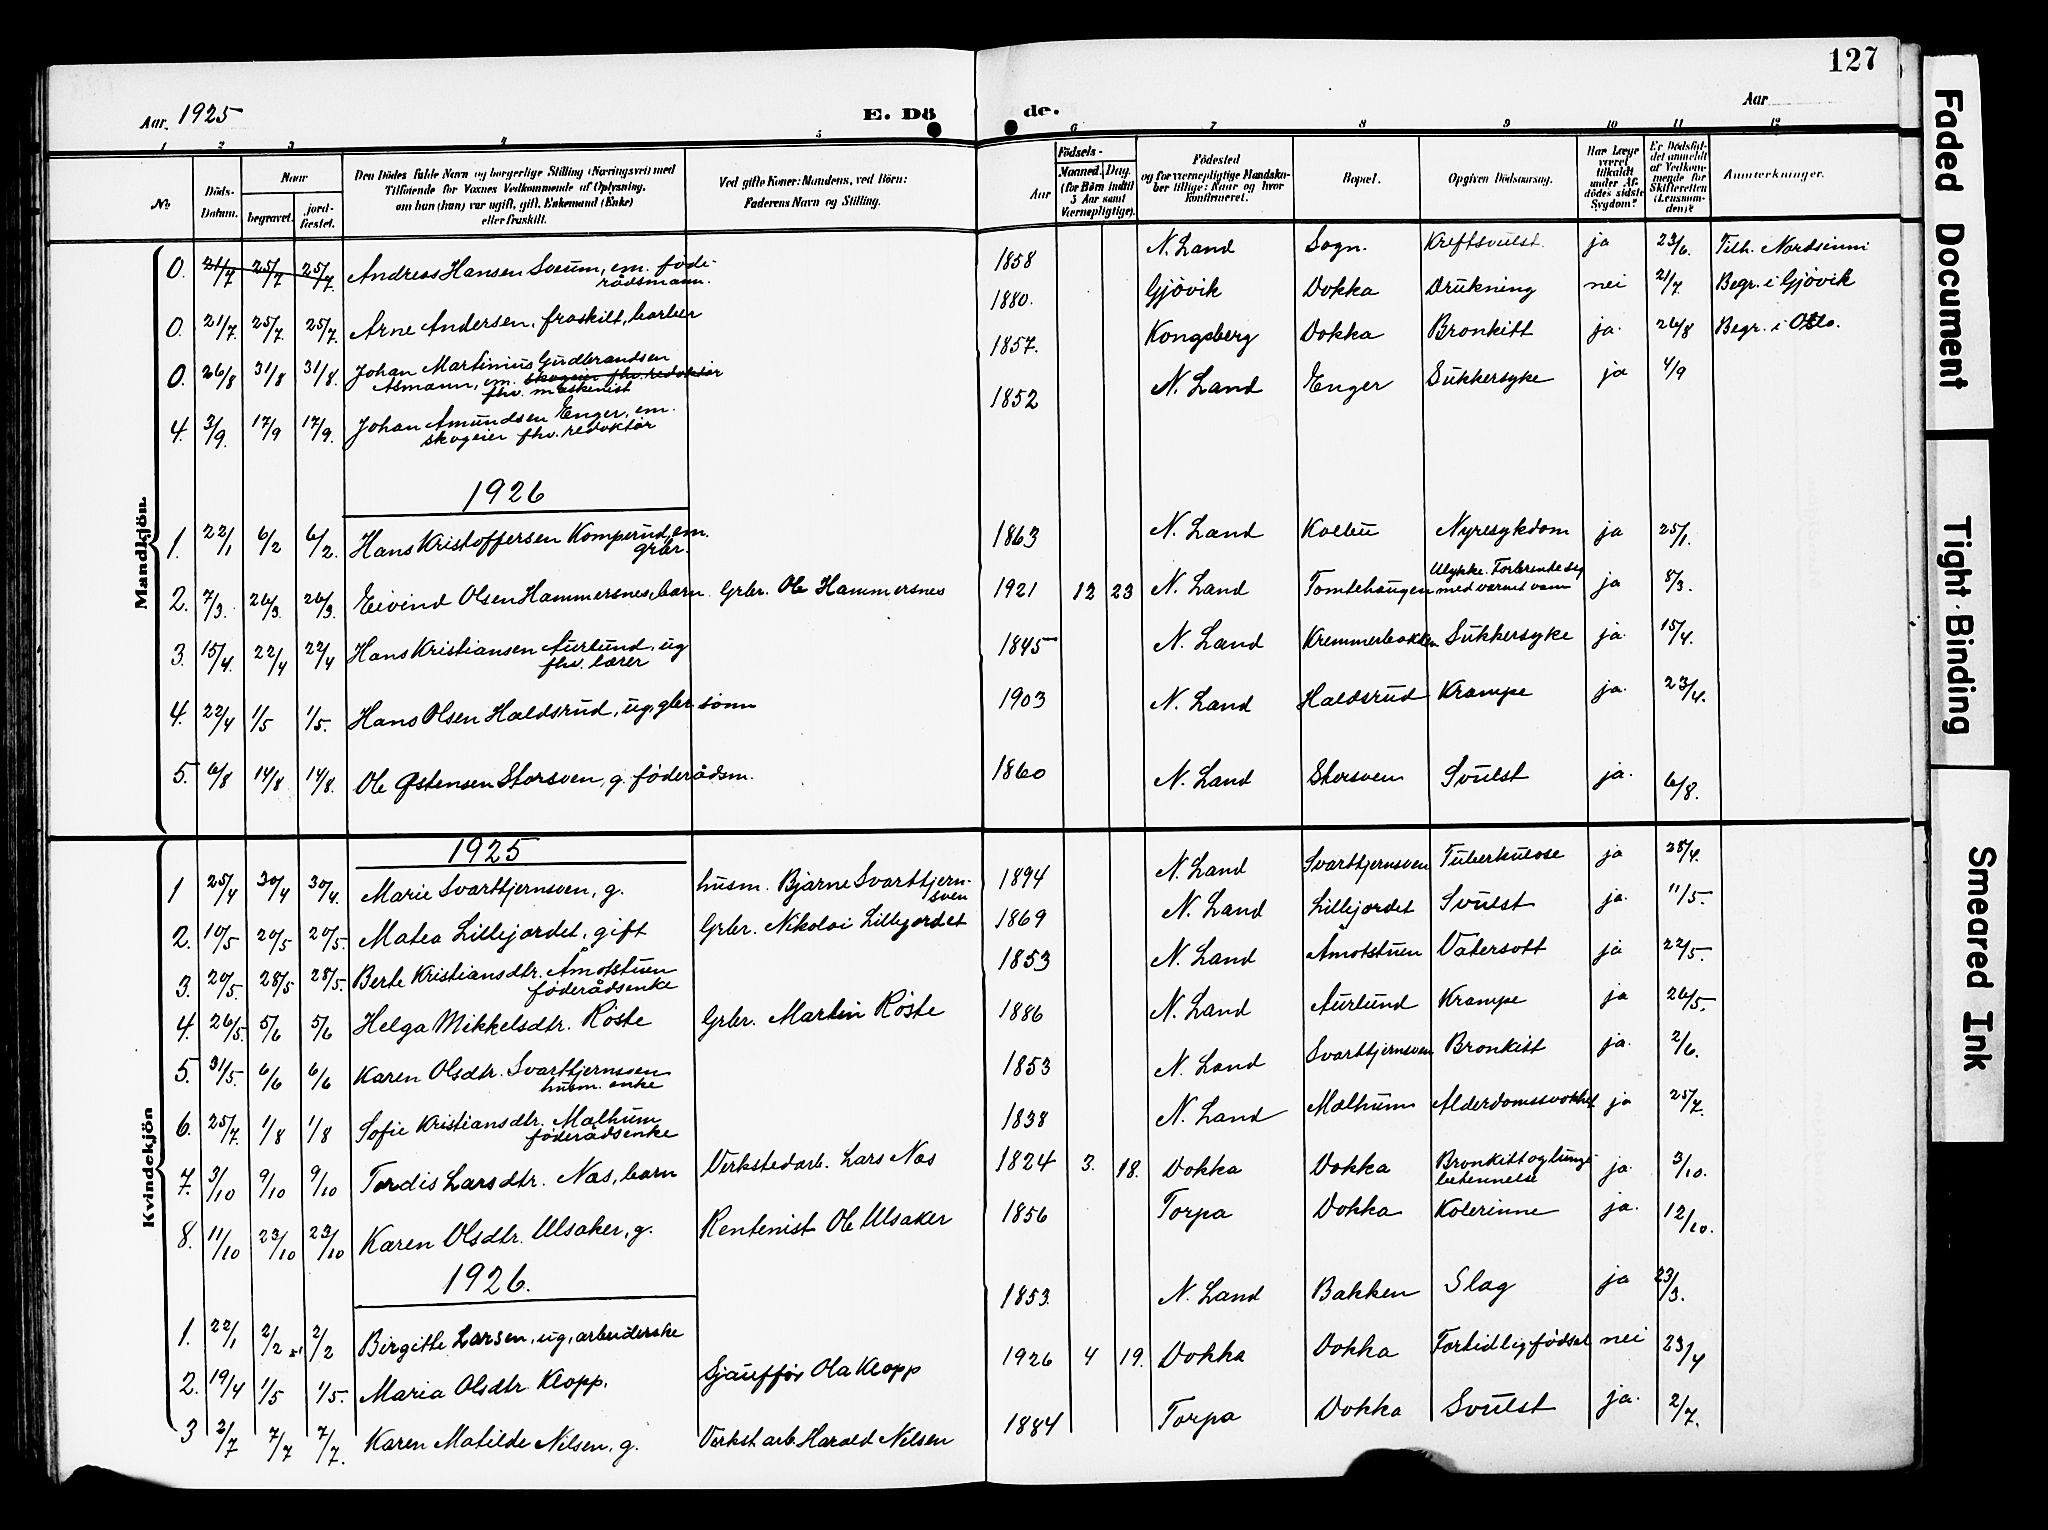 127
Aar. 1925
E. Dö de.
Aar
1 2 3 4 5 6 7 8 9 10 11 12
No
Döds-Datum.
Naar
begravet.
jord-fæstet.
Den Dödes fulde Navn og borgerlige Stilling (Næringsvei) med
Tilföiende for Voxnes Vedkommende af Oplysning,
om hun (han) var ugift, gift, Enkemand (Enke)
eller fraskilt.
Ved gifte Koner: Mandens, ved Börn:
Faderens Navn og Stilling.
Födsels-
Aar
Maaned. Dag.
(for Börn indtil
5 Aar samt
Værnepligtige).
Födested
og for værnepligtige Mandska-
ber tillige: Naar og hvor
konfirmeret.
Bopæl.
Opgiven Dödsaarsag.
Har Læge
været
tilkaldt
under Af-
dödes sidste
Sygdom?
Er Dödsfal-
det anmeldt
af Vedkom-
mende for
Skifteretten
(Lensman-
den)?
Anmærkninger.
Mandkjön.
0. 21/7 25/7 25/7. Andreas Hansen Sveum, em. föde-
rådsmann. 1858 N. Land Sogn. Kreftsvulst. ja 23/6. Tilh. Nordsinni
0. 21/7. 25/7. 25/7. Arne Andersen, fraskilt, barber 1880. Gjövik Dokka Drukning nei 21/7 Begr. i Gjövik
0. 26/8 31/8 31/8. Johan Martinius Gudbrandsen
Asmann, em. skogeier fhv. redaktör
fhv. maskenist 1857. Kongsberg Dokka Bronkitt ja. 26/8 Begr. i Oslo.
4. 3/9. 17/9 17/9. Johan Amundsen Enger, em.
skogeier fhv. redaktör 1852 N. Land Enger Sukkersyke ja 4/9
1926
1. 22/1 6/2 6/2. Hans Kristoffersen Komperud, em.
grbr. 1863 N. Land Kolbu Nyresykdom ja 25/1.
2. 7/3. 26/3 26/3. Eivind Olsen Hammersnes, barn Grbr. Ole Hammersnes 1921 12 23 N. Land Tomtehaugen Ulykke. Forbrente sig
med varmt vann ja 8/3.
3. 15/4. 22/4 22/4 Hans Kristiansen Aurlund, ug
fhv. lærer 1845 N. Land Kremmerbakken Sukkersyke ja. 15/4.
4. 22/4 1/5 1/5. Hans Olsen Haldsrud, ug, gbr. sönn 1903 N. Land Haldsrud Krampe ja. 23/4.
5. 6/8 14/8 14/8. Ole Østensen Storsven, g. föderådsm. 1860 N. Land Storsven Svulst ja. 6/8.
Kvindekjön
1925
1 25/4 30/4 30/4. Marie Svarttjernsven, g. husm. Bjarne Svarttjern-
sven 1894 N. Land Svarttjernsven Tuberkulose ja 28/4.
2. 10/5 20/5 20/5. Matea Lillejordet, gift Grbr. Nikolai Lillejordet 1869 N. Land Lillejordet Svulst ja. 11/5.
3. 20/5. 28/5 28/5. Berte Kristiansdtr. Åmotstuen
föderådsenke 1853 N. Land Åmotstuen Vatersott ja 22/5.
4. 26/5. 5/6 5/6 Helga Mikkelsdtr. Röste Grbr. Martin Röste 1886 N. Land Aurlund Krampe ja 26/5.
5. 31/5. 6/6 6/6 Karen Olsdtr. Svarttjernsven
husm. enke 1853 N. Land Svarttjernsven Bronkitt ja. 2/6.
6. 25/7 1/8 1/8 Sofie Kristiansdtr. Mælhum
föderådsenke 1838 N. Land Mælhum Alderdomssvakhet ja 25/7.
7. 3/10 9/10 9/10 Tordis Larsdtr. Næs, barn Verkstedarb. Lars Næs 1824 3. 18. Dokka Dokka Bronkitt og lunge-
betennelse ja. 3/10.
8. 11/10 23/10 23/10 Karen Olsdtr. Ulsaker, g. Rentenist Ole Ulsaker 1856 Torpa Dokka Kolerinne ja. 12/10.
1926.
1. 22/1 2/2 2/2 Birgitte Larsen, ug, arbeiderske 1853. N. Land Bakken Slag ja 23/3.
2. 19/4 1/5 1/5. Maria Olsdtr. Klopp. Sjaufför Ola Klopp 1926 4 19. Dokka Dokka Fortidlig födsel nei 23/4
3 2/7 7/7 7/7. Karen Matilde Nilsen, g. Verkst.arb. Harald Nilsen 1884 Torpa Dokka Svulst ja. 2/7.
Faded Document
Tight Binding
Smeared Ink